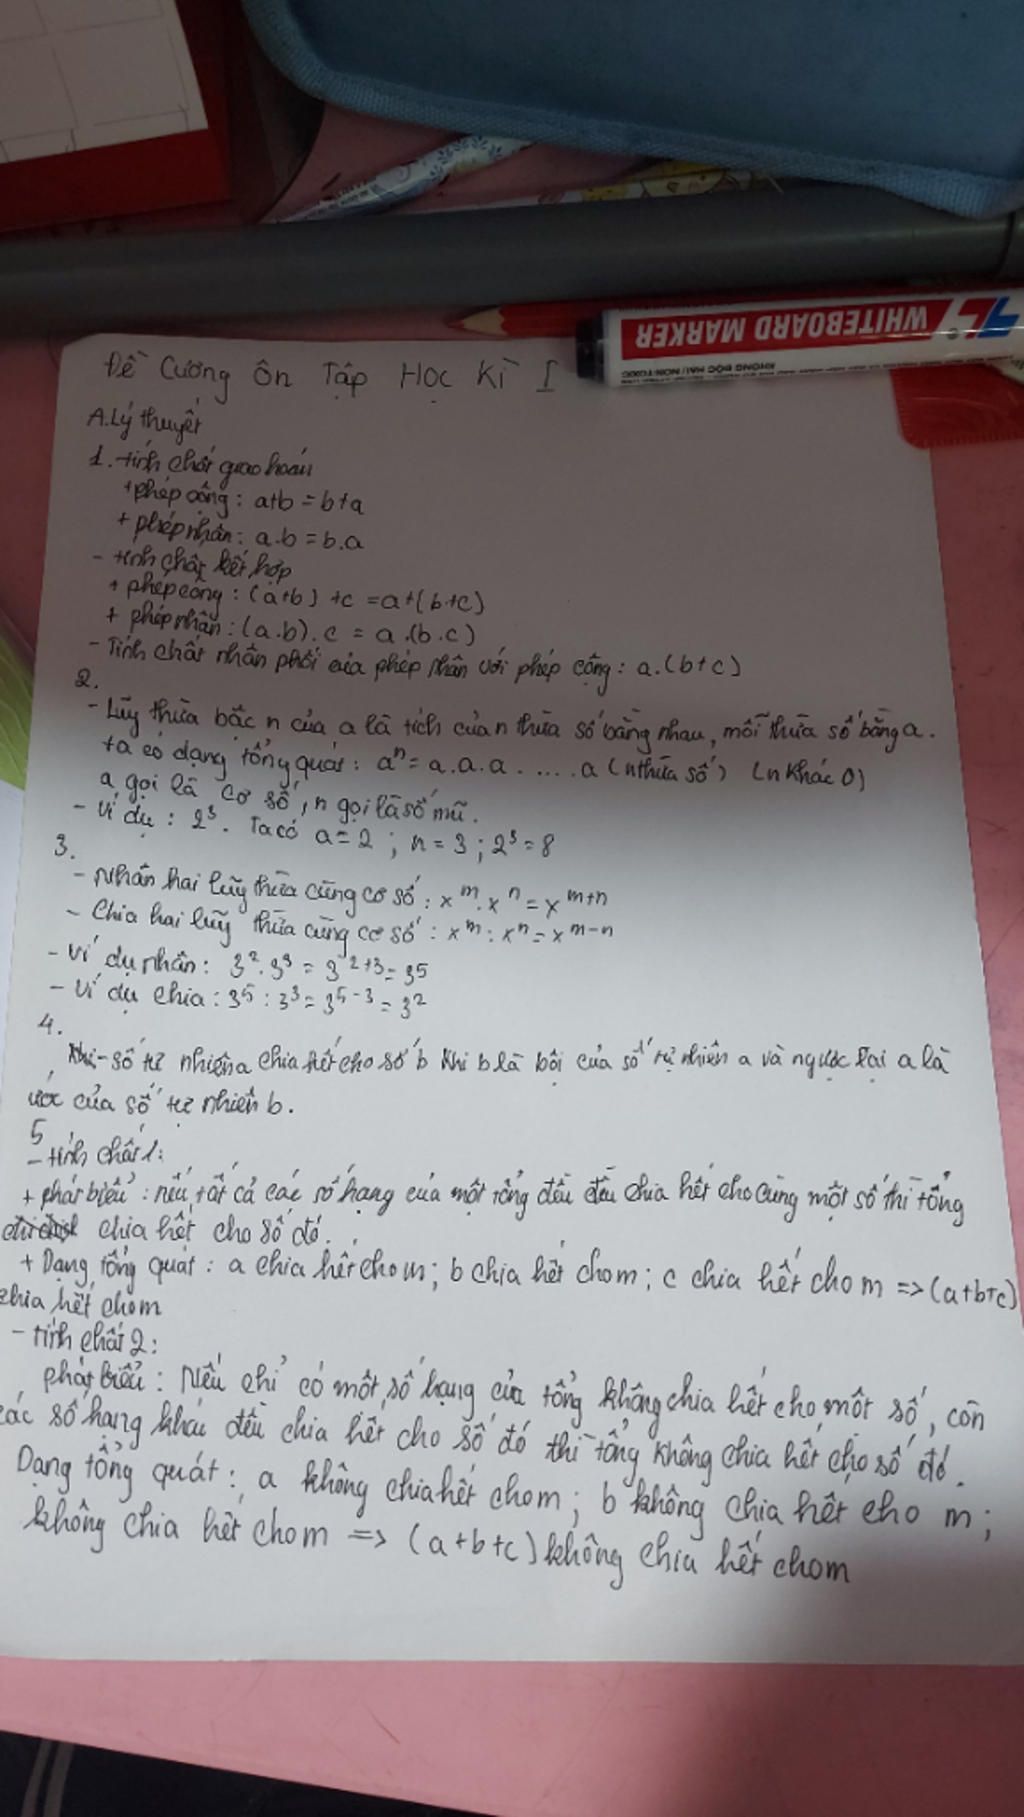 WHITEBOARD MARKER
KHÔNG ĐỘC HẠI / NON-TOXIC
Đề Cương Ôn Tập Học Kì I
A. Lý thuyết
1. tính chất giao hoán
+ phép cộng: a+b = b+a
+ phép nhân: a.b = b.a
- tính chất kết hợp
+ phép cộng: (a+b) +c = a+(b+c)
+ phép nhân: (a.b).c = a.(b.c)
- Tính chất nhân phối của phép nhân với phép cộng: a.(b+c)
2.
- Lũy thừa bậc n của a là tích của n thừa số bằng nhau, mỗi thừa số bằng a.
ta có dạng tổng quát: aⁿ = a.a.a. .... .a (n thừa số) (n khác 0)
a gọi là cơ số, n gọi là số mũ.
- Ví dụ: 2³. Ta có a = 2 ; n = 3 ; 2³ = 8
3.
- Nhân hai lũy thừa cùng cơ số: xᵐ.xⁿ = xᵐ⁺ⁿ
- Chia hai lũy thừa cùng cơ số: xᵐ : xⁿ = xᵐ⁻ⁿ
- Ví dụ nhân: 3².3³ = 3²⁺³ = 3⁵
- Ví dụ chia: 3⁵ : 3³ = 3⁵⁻³ = 3²
4.
- số tự nhiên a chia hết cho số b khi b là bội của số tự nhiên a và ngược lại a là
ước của số tự nhiên b.
5
- tính chất 1:
+ phát biểu: nếu tất cả các số hạng của một tổng đều đều chia hết cho cùng một số thì tổng
chia hết cho số đó.
+ Dạng tổng quát: a chia hết cho m; b chia hết cho m; c chia hết cho m => (a+b+c)
chia hết cho m
- tính chất 2:
phát biểu: Nếu chỉ có một số hạng của tổng không chia hết cho một số, còn
các số hạng khác đều chia hết cho số đó thì tổng không chia hết cho số đó.
Dạng tổng quát: a không chia hết cho m; b không chia hết cho m;
không chia hết cho m => (a+b+c) không chia hết cho m